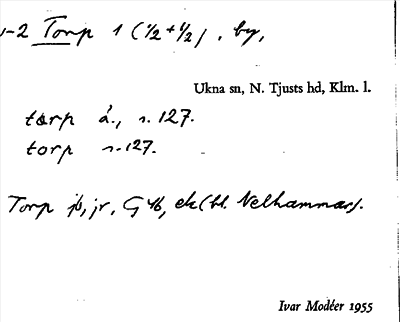 1-2 Torp 1 (1/2+1/2), by,
Ukna sn, N. Tjusts hd, Klm. l.
tarp å., s. 127.
torp s. 127.
Torp jb, jr, G 46, ek (bl. Nelhammar).
Ivar Modéer 1955